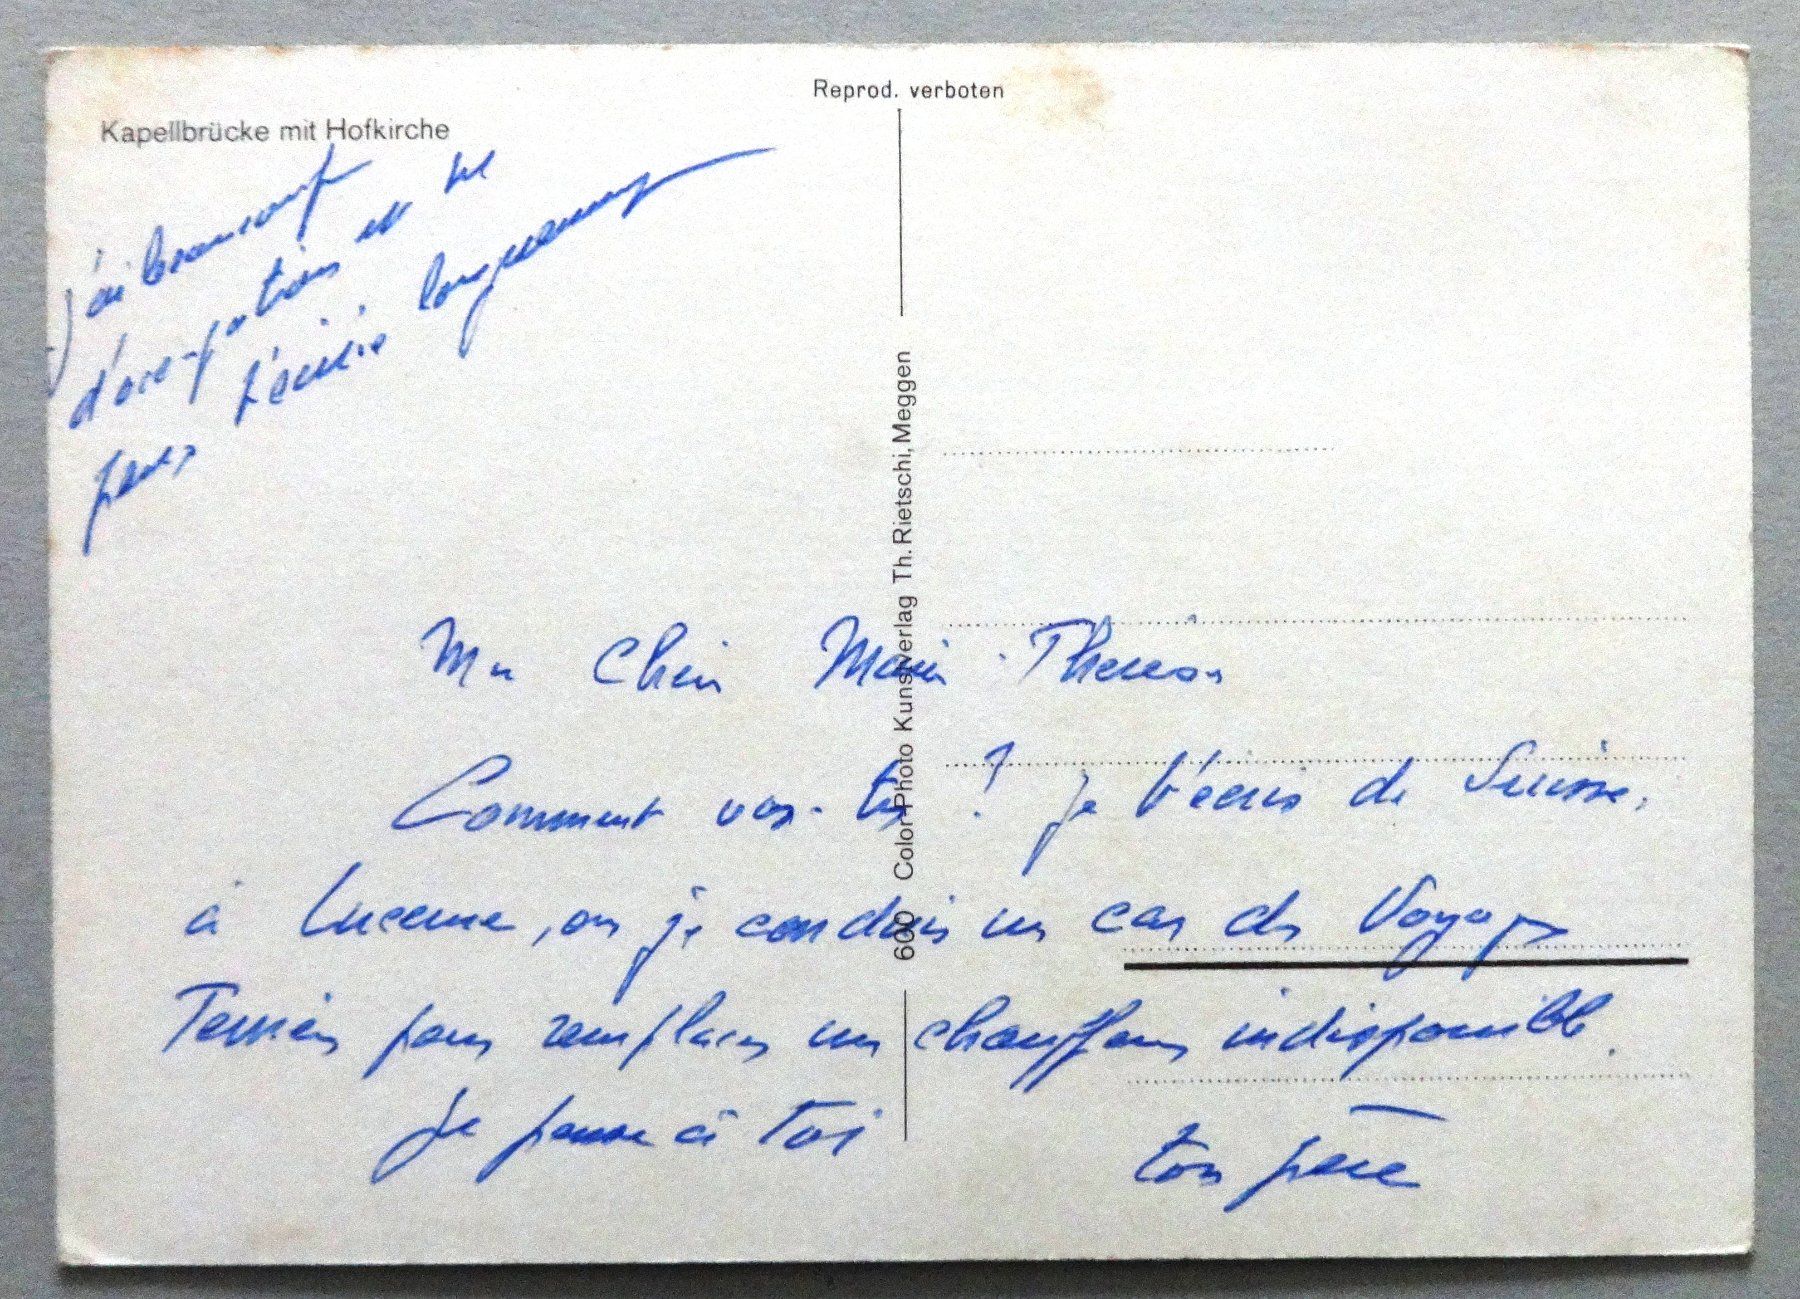 Reprod. verboten
Kapellbrücke mit Hofkirche
J'ai beaucoup
d'occupations et ne
peux t'écrire longuement
600 Color-Photo Kunstverlag Th. Rietschi, Meggen
Ma Chère Marie-Thérèse
Comment vas-tu ? je t'écris de Suisse,
à Lucerne, où je conduis un car des Voyages
pour remplacer un chauffeur indisponible.
Je pense à toi
ton père